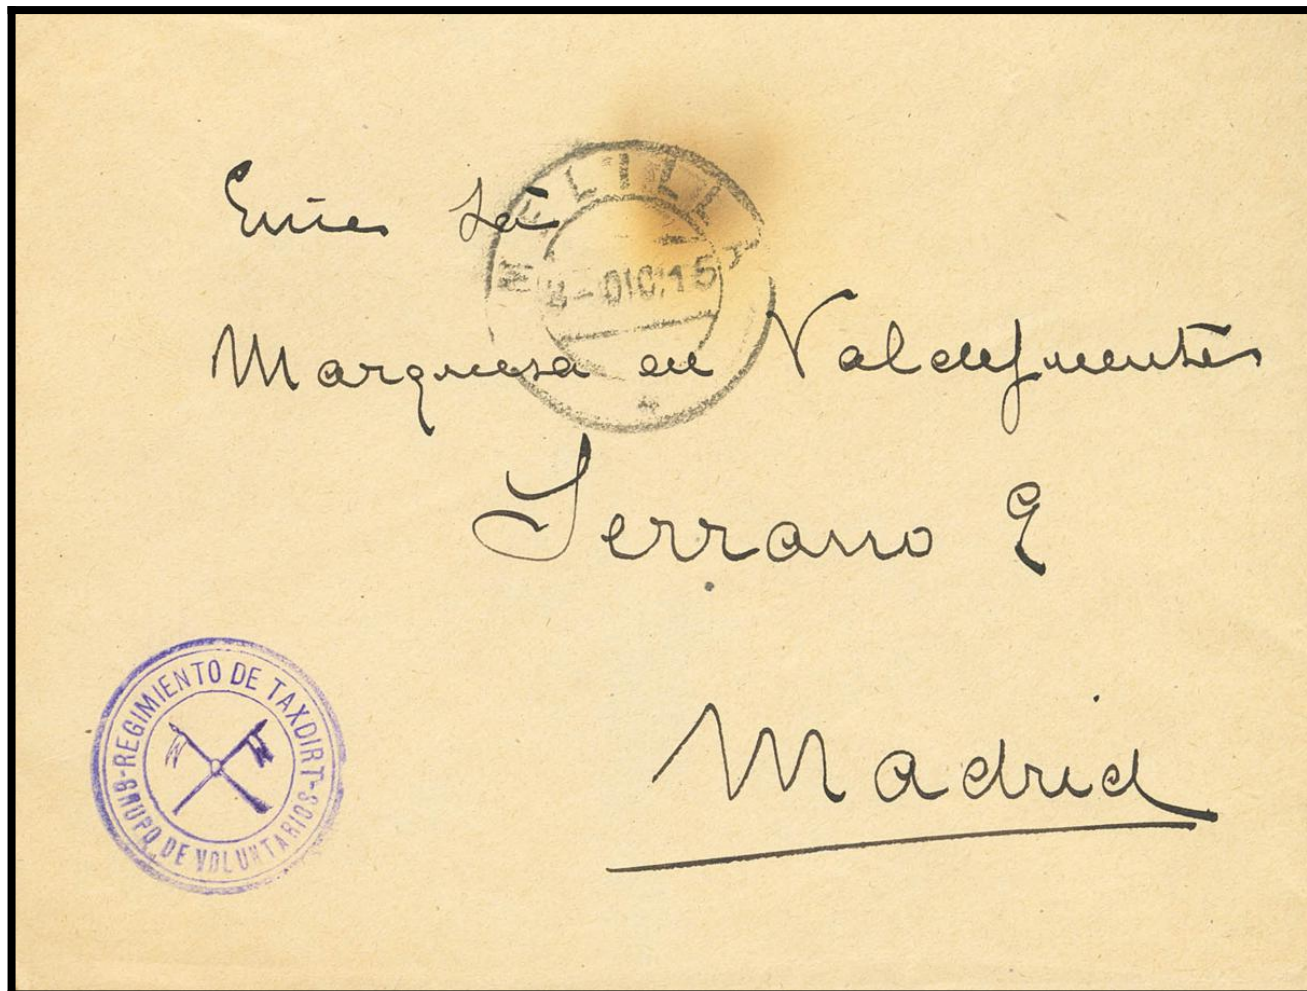 MELILLA
DIC 15
Marquesa de Valdefuentes
Serrano 9
Madrid
REGIMIENTO DE TAXDIRT-
GRUPO DE VOLUNTARIOS-